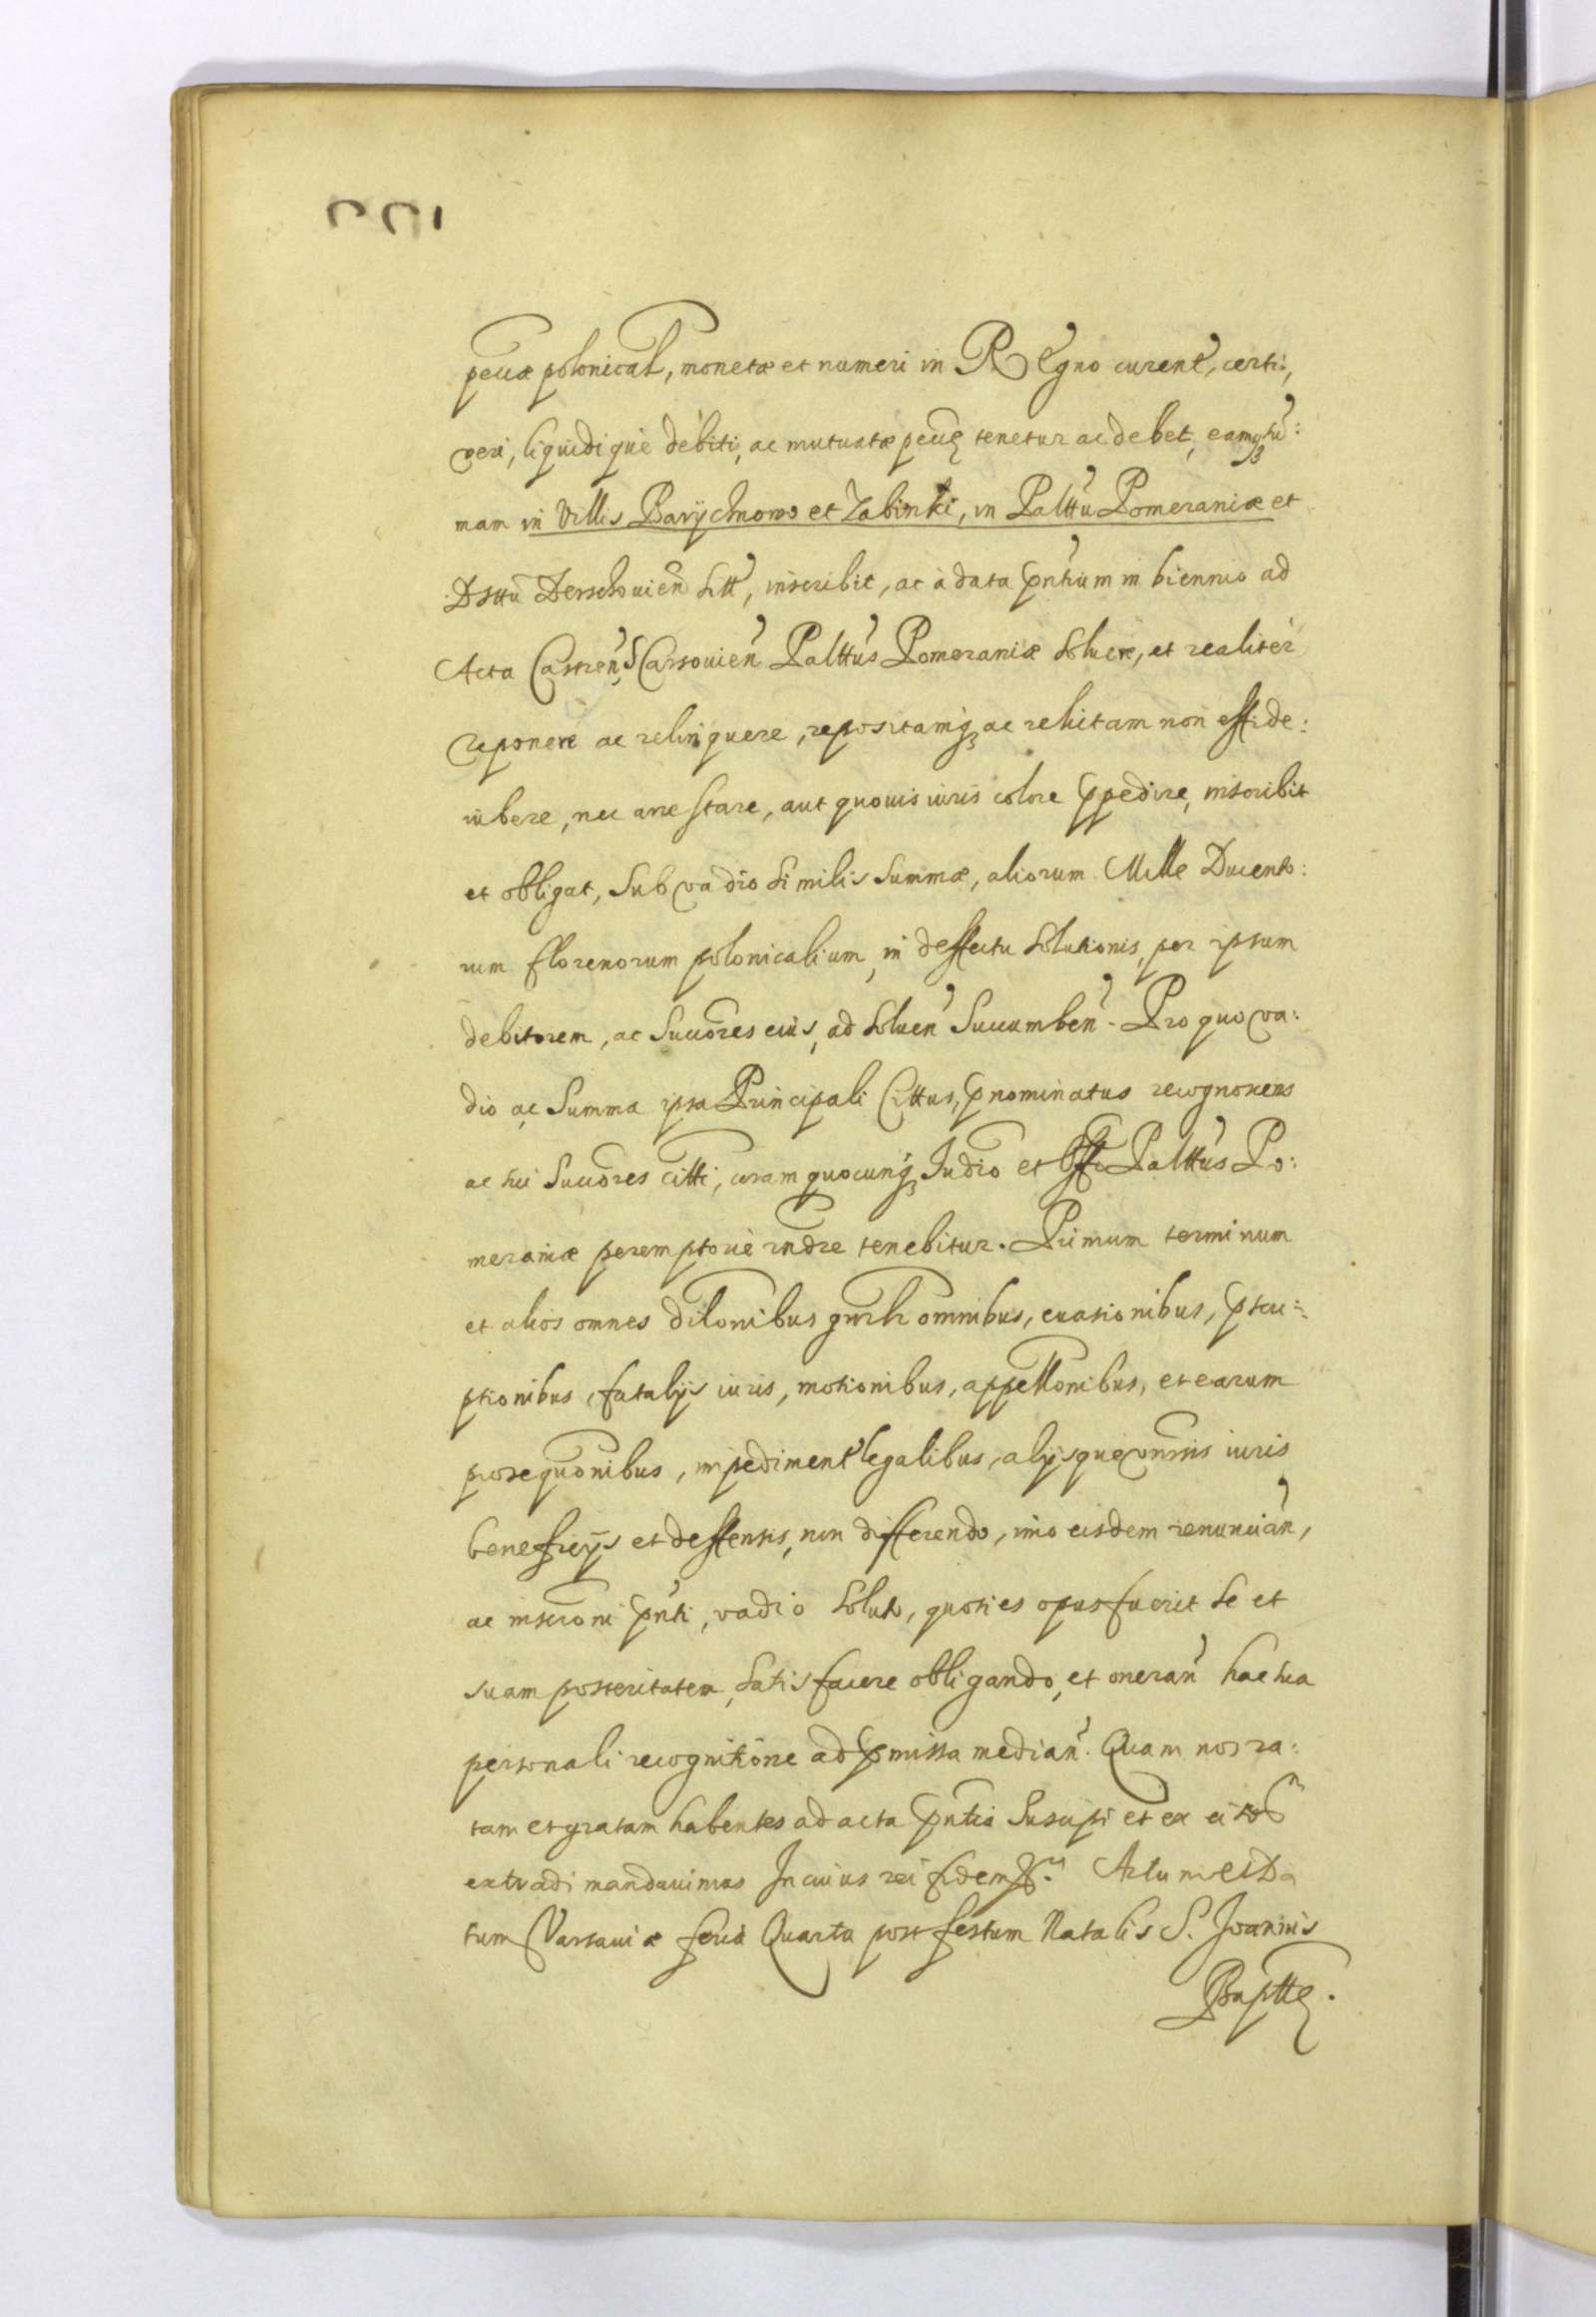 pecuæ polonical, monetæ et numeri in Regno curent, certi,
veri, liquidique debiti, ac mutuatæ pecuę tenetur ac debet, eamq; su:
mam in Villis Barÿchnowo et Zabinki, in Palttu Pomeraniæ et
Dsttu Derschouien sitt, inscribit, ac à data pntium in biennio ad
Acta Castren Scarsouien Palttus Pomeraniæ soluere, et realiter
reponere ac relinquere, repositamq; ac relictam non effide:
iubere, nec arrestare, aut quouis iuris colore ppedire, inscribit
et obligat, sub vadio similis summæ, aliorum Mille Ducento:
rum florenorum polonicalium, in deffectu solutionis, per ipsum
debitorem, ac Succores eius, ad soluen Succumben. Pro quo va:
dio ac Summa ipsa Principali Cittus, pnominatus recognoscens
ac sui Succores citti, coram quocunq; Judio et Offo Palttus Po:
meraniæ peremptorie rndre tenebitur. Primum terminum
et alios omnes dilonibus gnrlr omnibus, euasionibus, pscri:
ptionibus, fatalijs iuris, motionibus, appellonibus, et earum
prosequonibus, impediment legalibus, alijsque omnis iuris
beneficijs et deffensis, non differendo, imo eisdem renuncian,
ac inscroni pnti, vadio soluto, quoties opus fuerit se et
suam posteritatem, satisfacere obligando, et oneran hac sua
personali recognitione ad pmissa median. Quam nos ra:
tam et gratam habentes ad acta pntia Suscipi et ex eis
extradi mandauimus In cuius rei fidem Actum et Da
tum Varsauiæ feria Quarta post festum Natalis S. Joannis
Baptte.